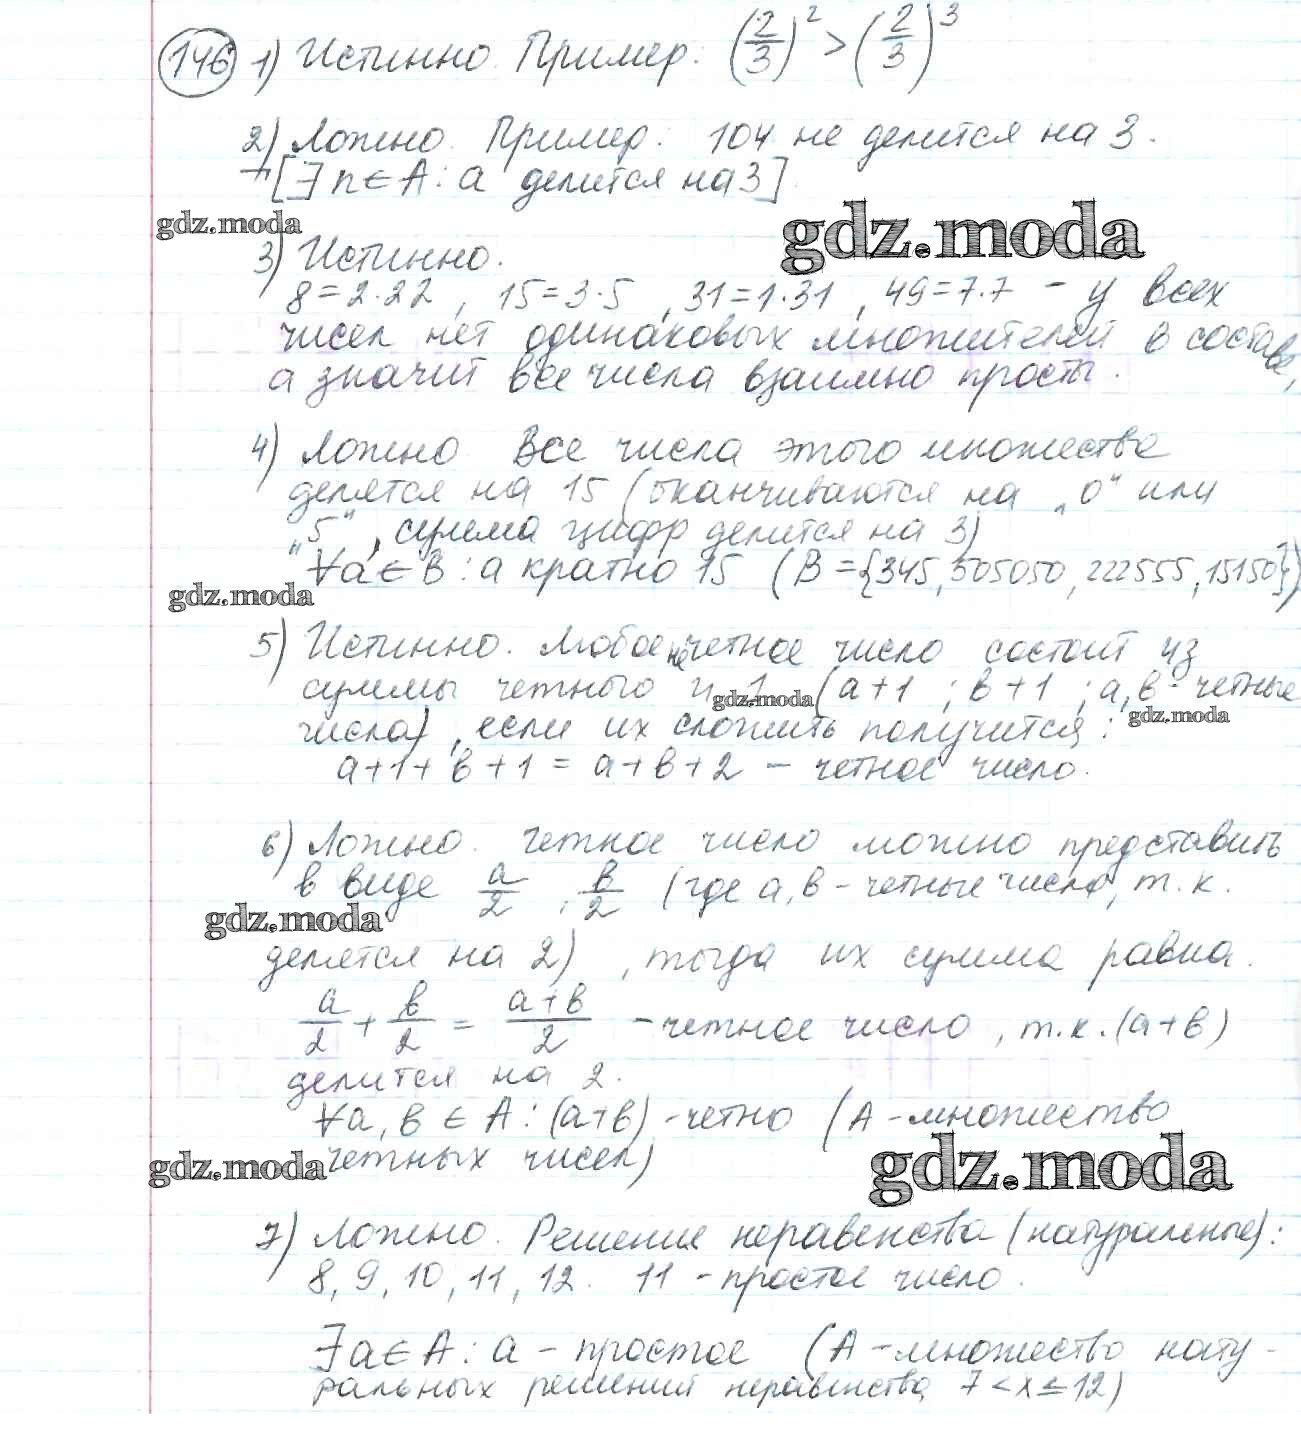 146 1) Истинно. Пример: (2/3)² > (2/3)³
2) Ложно. Пример: 104 не делится на 3.
[∃ n ∈ A: a делится на 3]
gdz.moda gdz.moda
3) Истинно.
8=2·22, 15=3·5, 31=1·31, 49=7·7 – у всех
чисел нет одинаковых множителей в составе,
а значит все числа взаимно просты.
4) Ложно Все числа этого множества
делятся на 15 (оканчиваются на „0" или
„5", сумма цифр делится на 3)
∀a ∈ B: a кратно 15 (B = {345, 505050, 222555, 15150})
gdz.moda
5) Истинно. Любое нечетное число состоит из
суммы четного и 1 (a+1; в+1; a, в - четные
gdz.moda gdz.moda
числа), если их сложить получится:
a+1+в+1 = a+в+2 – четное число.
6) Ложно. Четное число можно представить
в виде a/2, в/2 (где a, в – четные числа, т.к.
gdz.moda
делятся на 2), тогда их сумма равна.
a/2 + в/2 = (a+в)/2 – четное число, т.к. (a+в)
делится на 2.
∀a, в ∈ A: (a+в) – четно (A – множество
четных чисел)
gdz.moda gdz.moda
7) Ложно. Решения неравенства (натуральные):
8, 9, 10, 11, 12. 11 – простое число.
∃a ∈ A: a – простое (A – множество нату-
ральных решений неравенства 7 < x ≤ 12)